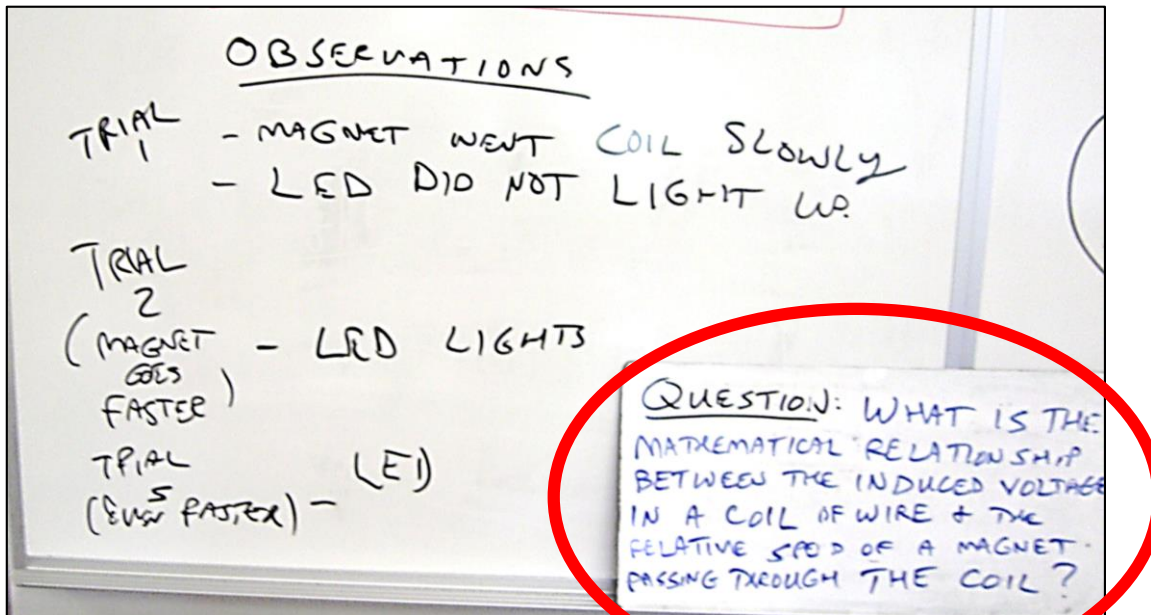 OBSERVATIONS
TRIAL 1 - MAGNET WENT COIL SLOWLY
- LED DID NOT LIGHT UP.
TRIAL
2
(MAGNET - LED LIGHTS
GOES
FASTER)
TRIAL LED
5
(EVEN FASTER) -
QUESTION: WHAT IS THE
MATHEMATICAL RELATIONSHIP
BETWEEN THE INDUCED VOLTAGE
IN A COIL OF WIRE & THE
RELATIVE SPEED OF A MAGNET
PASSING THROUGH THE COIL?